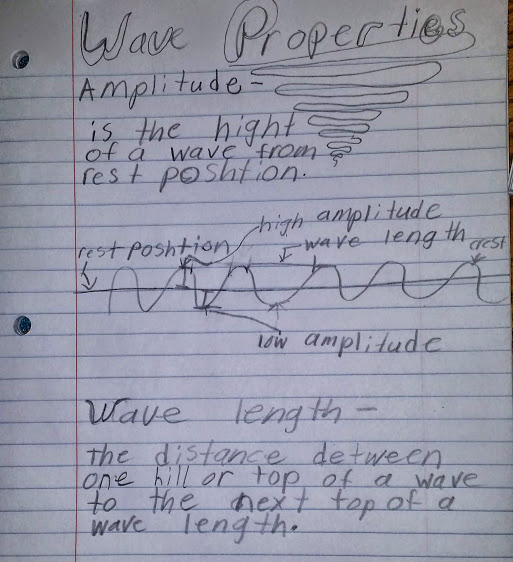 Wave Properties
Amplitude-
is the hight
of a wave from
rest poshtion.
high amplitude
rest poshtion
wave length
crest
low amplitude
Wave length-
the distance detween
one hill or top of a wave
to the next top of a
wave length.